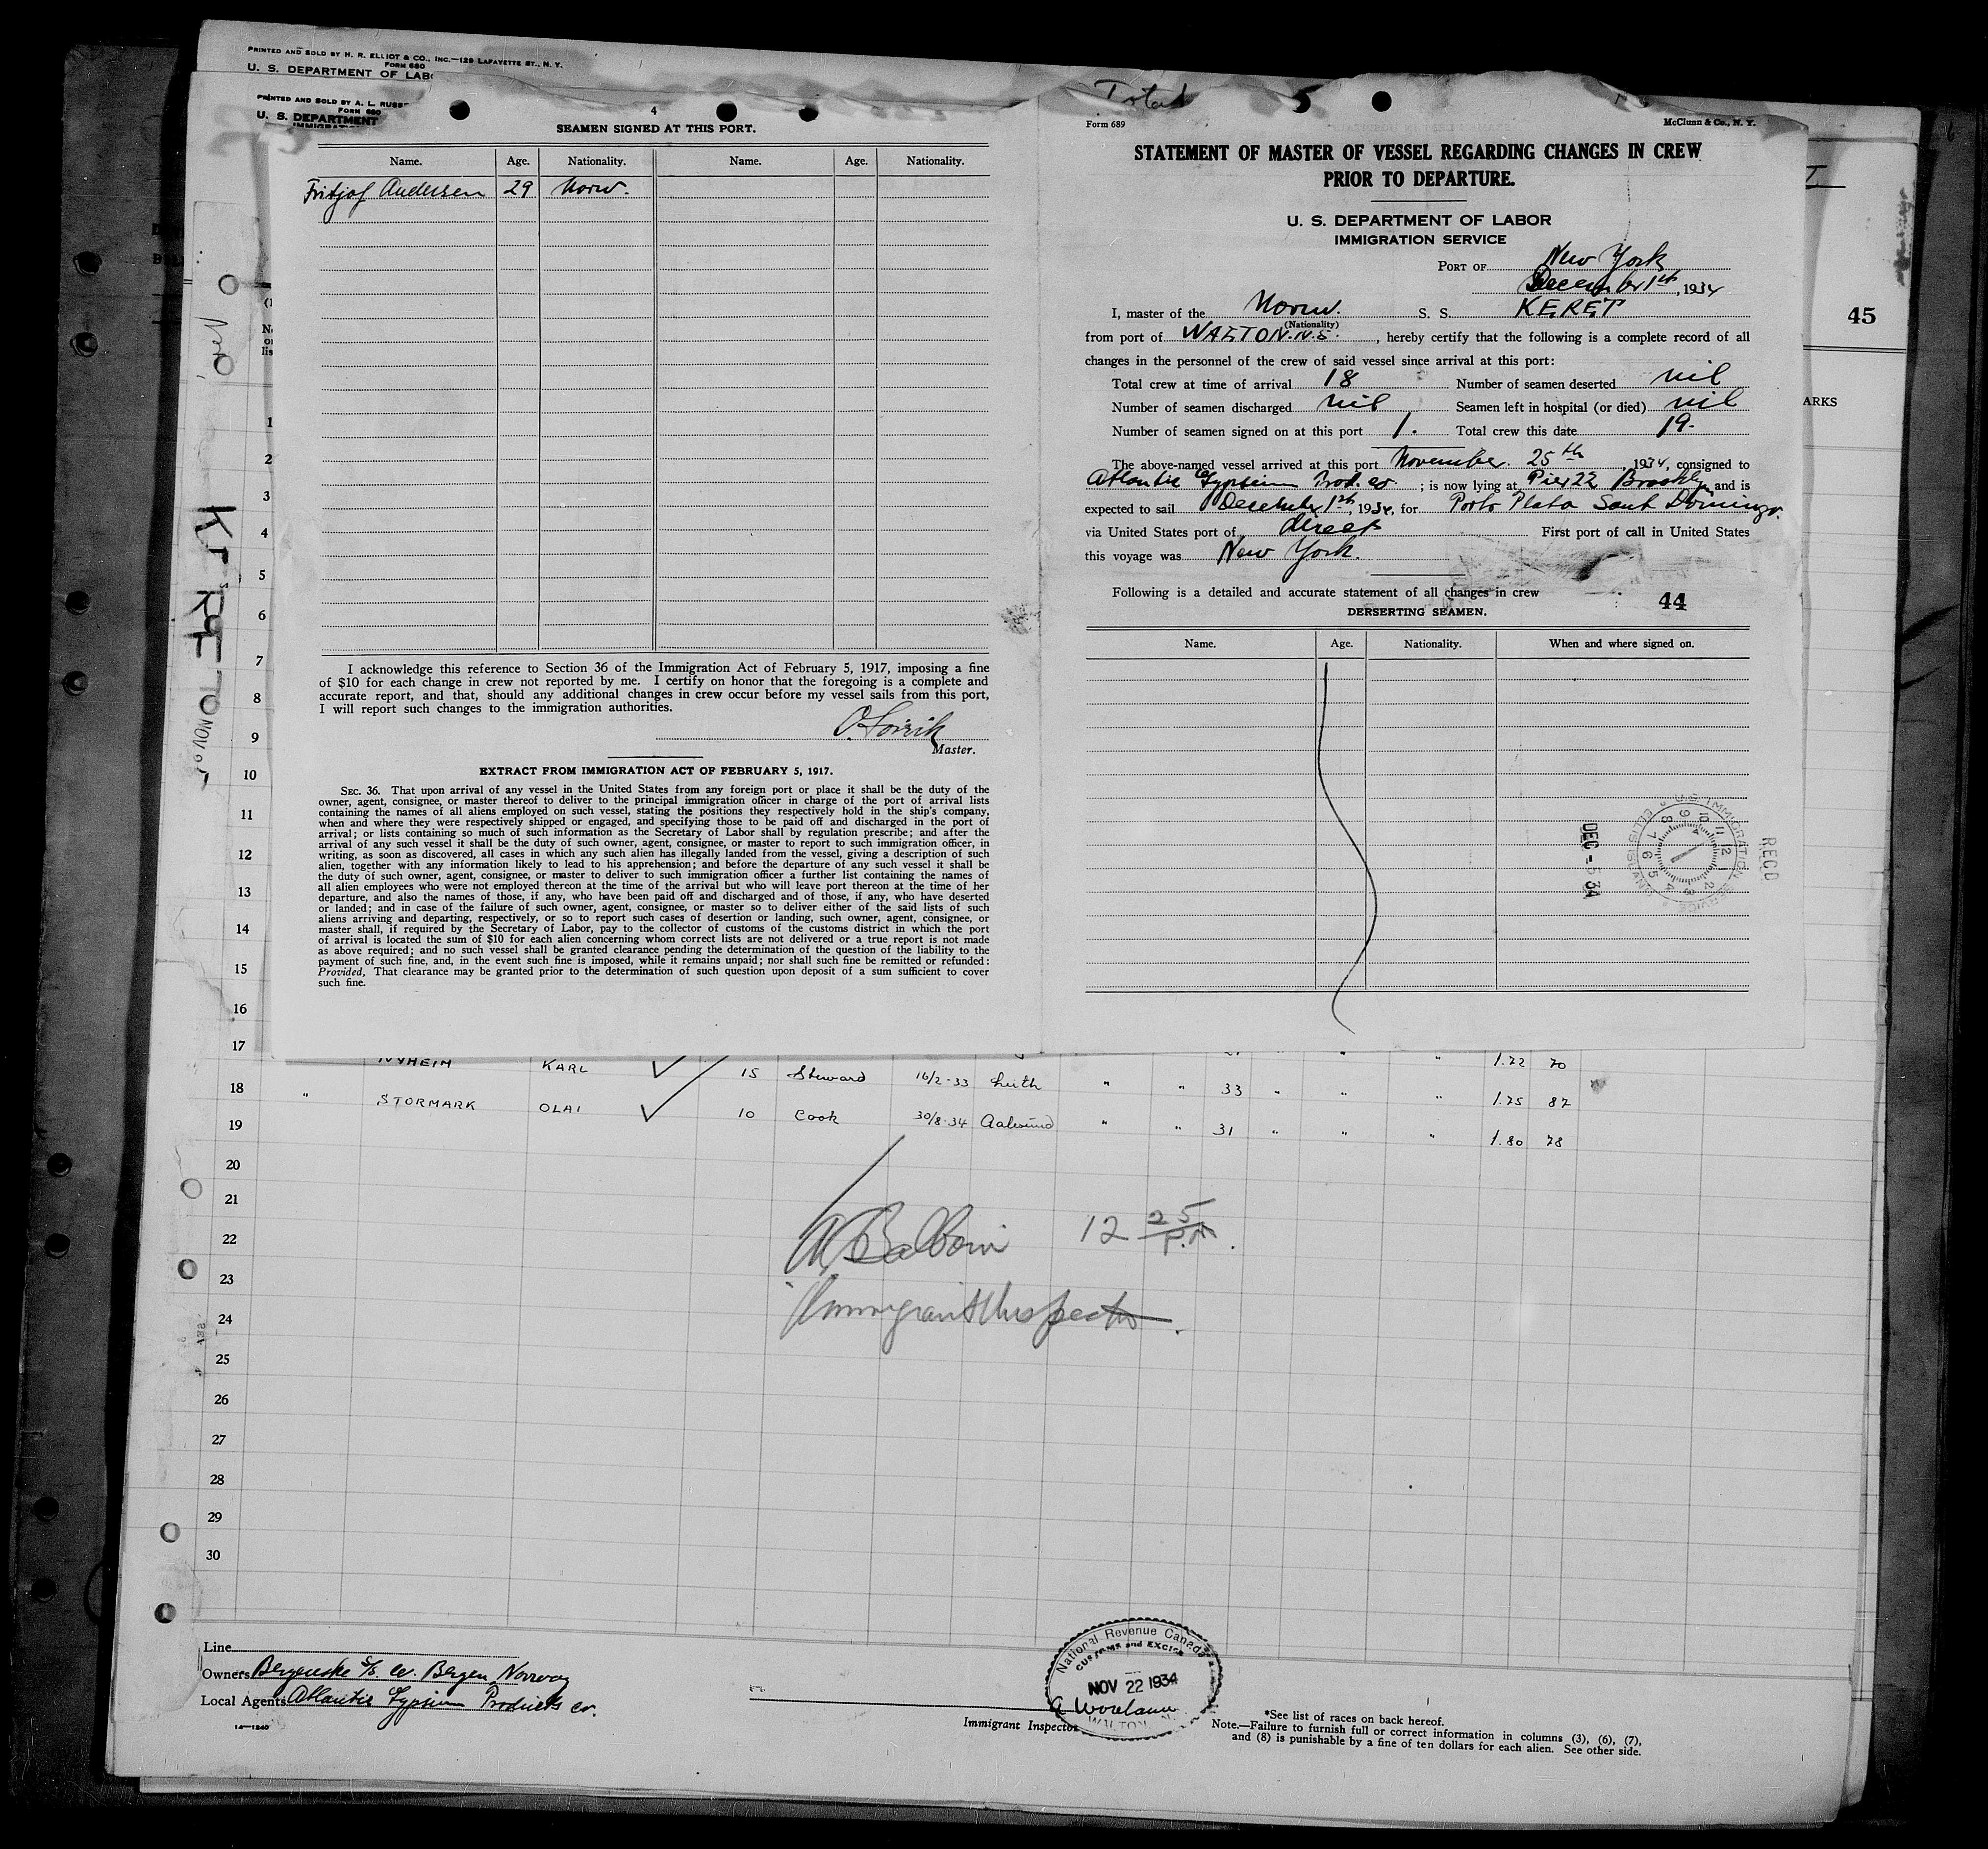 PRINTED AND SOLD BY H. R. ELLIOT & CO., INC.—129 LAFAYETTE ST., N. Y.
FORM 680
U. S. DEPARTMENT OF LAB
PRINTED AND SOLD BY A. L. RUSS
FORM 680
U. S. DEPARTMENT
4
SEAMEN SIGNED AT THIS PORT.
Name. Age. Nationality. Name. Age. Nationality.
Fritjof Andersen 29 Norw.
I acknowledge this reference to Section 36 of the Immigration Act of February 5, 1917, imposing a fine
of $10 for each change in crew not reported by me. I certify on honor that the foregoing is a complete and
accurate report, and that, should any additional changes in crew occur before my vessel sails from this port,
I will report such changes to the immigration authorities.
Master.
EXTRACT FROM IMMIGRATION ACT OF FEBRUARY 5, 1917.
SEC. 36. That upon arrival of any vessel in the United States from any foreign port or place it shall be the duty of the
owner, agent, consignee, or master thereof to deliver to the principal immigration officer in charge of the port of arrival lists
containing the names of all aliens employed on such vessel, stating the positions they respectively hold in the ship's company,
when and where they were respectively shipped or engaged, and specifying those to be paid off and discharged in the port of
arrival; or lists containing so much of such information as the Secretary of Labor shall by regulation prescribe; and after the
arrival of any such vessel it shall be the duty of such owner, agent, consignee, or master to report to such immigration officer, in
writing, as soon as discovered, all cases in which any such alien has illegally landed from the vessel, giving a description of such
alien, together with any information likely to lead to his apprehension; and before the departure of any such vessel it shall be
the duty of such owner, agent, consignee, or master to deliver to such immigration officer a further list containing the names of
all alien employees who were not employed thereon at the time of the arrival but who will leave port thereon at the time of her
departure, and also the names of those, if any, who have been paid off and discharged and of those, if any, who have deserted
or landed; and in case of the failure of such owner, agent, consignee, or master so to deliver either of the said lists of such
aliens arriving and departing, respectively, or so to report such cases of desertion or landing, such owner, agent, consignee, or
master shall, if required by the Secretary of Labor, pay to the collector of customs of the customs district in which the port
of arrival is located the sum of $10 for each alien concerning whom correct lists are not delivered or a true report is not made
as above required; and no such vessel shall be granted clearance pending the determination of the question of the liability to the
payment of such fine, and, in the event such fine is imposed, while it remains unpaid; nor shall such fine be remitted or refunded:
Provided, That clearance may be granted prior to the determination of such question upon deposit of a sum sufficient to cover
such fine.
Total 5
Form 689 McClunn & Co., N. Y.
STATEMENT OF MASTER OF VESSEL REGARDING CHANGES IN CREW
PRIOR TO DEPARTURE.
U. S. DEPARTMENT OF LABOR
IMMIGRATION SERVICE
PORT OF New York
December 1th, 1934
I, master of the Norw. S. S. KERET
(Nationality)
from port of WALTON. N. S., hereby certify that the following is a complete record of all
changes in the personnel of the crew of said vessel since arrival at this port:
Total crew at time of arrival 18 Number of seamen deserted nil
Number of seamen discharged nil Seamen left in hospital (or died) nil
Number of seamen signed on at this port 1. Total crew this date 19.
The above-named vessel arrived at this port November 25th, 1934, consigned to
Atlantic Gypsum Prod. Co ; is now lying at Pier 22 Brooklyn and is
expected to sail December 1th, 1934, for Porto Plata Sant Domingo.
via United States port of direct First port of call in United States
this voyage was New York.
Following is a detailed and accurate statement of all changes in crew
44
DERSERTING SEAMEN.
Name. Age. Nationality. When and where signed on.
RECD
U.S. IMMIGRATION SERVICE ELLIS ISLAND
DEC - 5 34
45
ARKS
KERET
1
2
3
4
5
6
7
8
9
10
11
12
13
14
15
16
17 NYHEIM KARL 15 Steward 16/2-33 Leith " " 33 " " " 1.75 87
18 " STORMARK OLAI 10 Cook 30/8-34 " " 31 " " " 1.80 78
1.72 70
19
20
21
22
23
24
25
26
27
28
29
30
A. Balboni 12 25 P.M.
Immigrant Inspector.
Line
Owners Bergenske S/S. Co. Bergen Norway
Local Agents Atlantic Gypsum Products Co.
14—1240
National Revenue Canada
CUSTOMS and EXCISE
NOV 22 1934
WALTON
Immigrant Inspector
*See list of races on back hereof.
Note.—Failure to furnish full or correct information in columns (3), (6), (7),
and (8) is punishable by a fine of ten dollars for each alien. See other side.